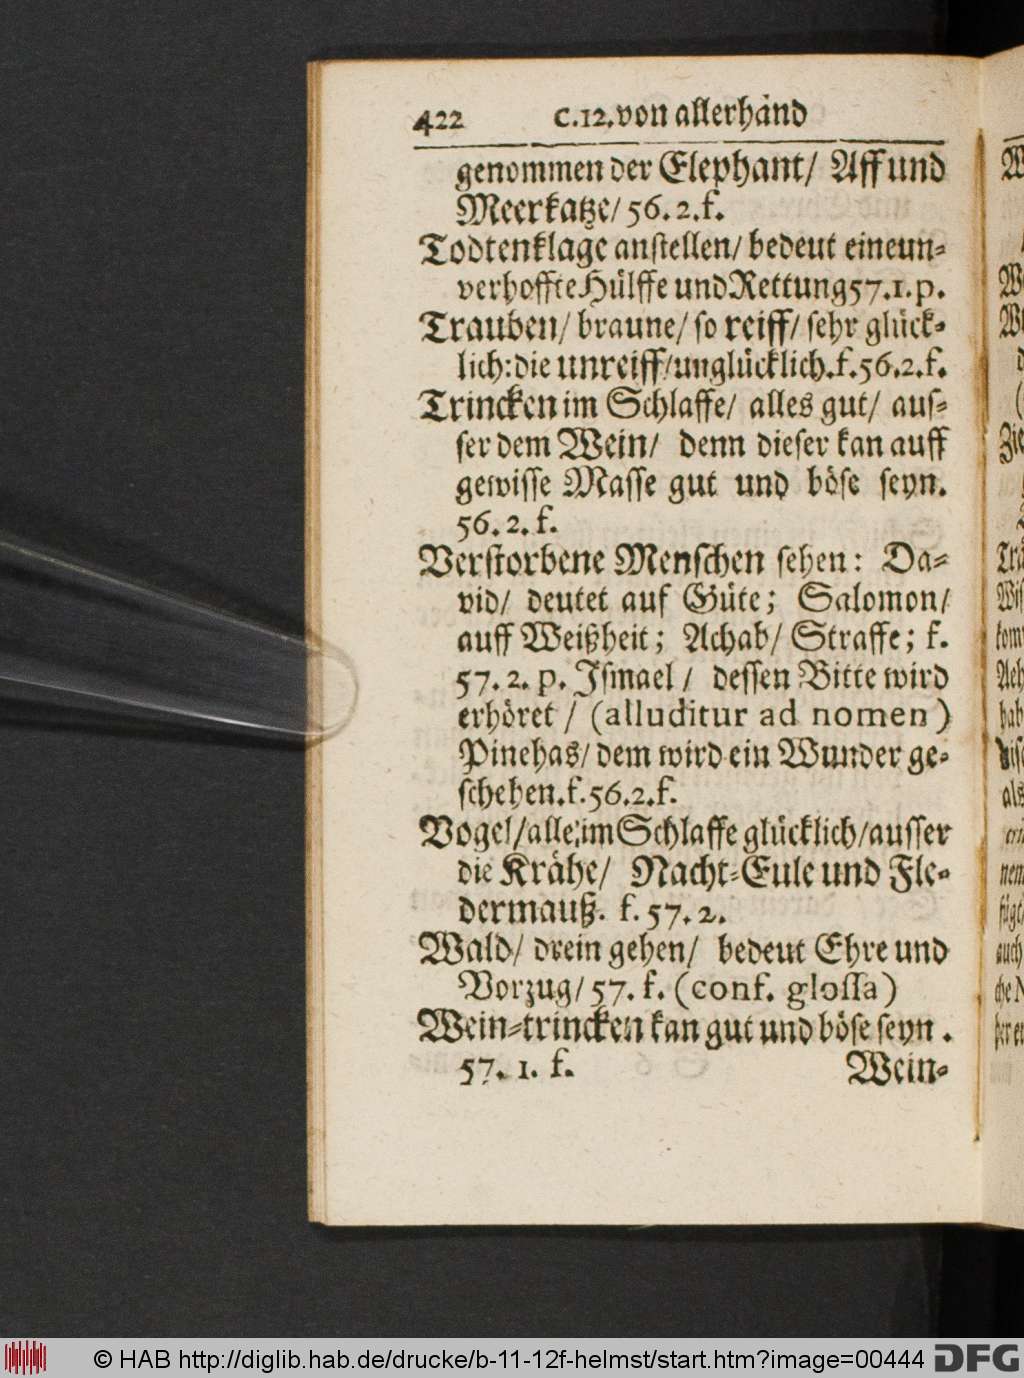 422 c.12. von allerhand
genommen der Elephant/ Aff und
Meerkatze/ 56. 2. f.
Todtenklage anstellen/ bedeut eine un-
verhoffte Hülffe und Rettung 57. 1. p.
Trauben/ braune/ so reiff/ sehr glück-
lich: die unreiff/ unglücklich. f. 56. 2. f.
Trincken im Schlaffe/ alles gut/ aus-
ser dem Wein/ denn dieser kan auff
gewisse Masse gut und böse seyn.
56. 2. f.
Verstorbene Menschen sehen: Da-
vid/ deutet auf Güte; Salomon/
auff Weißheit; Achab/ Straffe; f.
57. 2. p. Ismael/ dessen Bitte wird
erhöret/ (alluditur ad nomen)
Pinehas/ dem wird ein Wunder ge-
schehen. f. 56. 2. f.
Vogel/ alle im Schlaffe glücklich/ ausser
die Krähe/ Nacht-Eule und Fle-
dermauß. f. 57. 2.
Wald/ drein gehen/ bedeut Ehre und
Vorzug/ 57. f. (conf. glossa)
Wein-trincken kan gut und böse seyn.
57. 1. f. Wein-
© HAB http://diglib.hab.de/drucke/b-11-12f-helmst/start.htm?image=00444 DFG